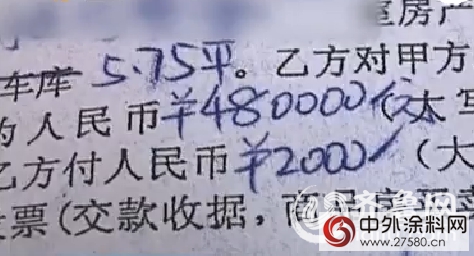 室房产
车库 5.75平。乙方对甲方
的人民币¥480000位(大写
乙方付人民币¥2000(大
发票(交款收据,商品房买卖
齐鲁网
中外涂料网
www.27580.cn